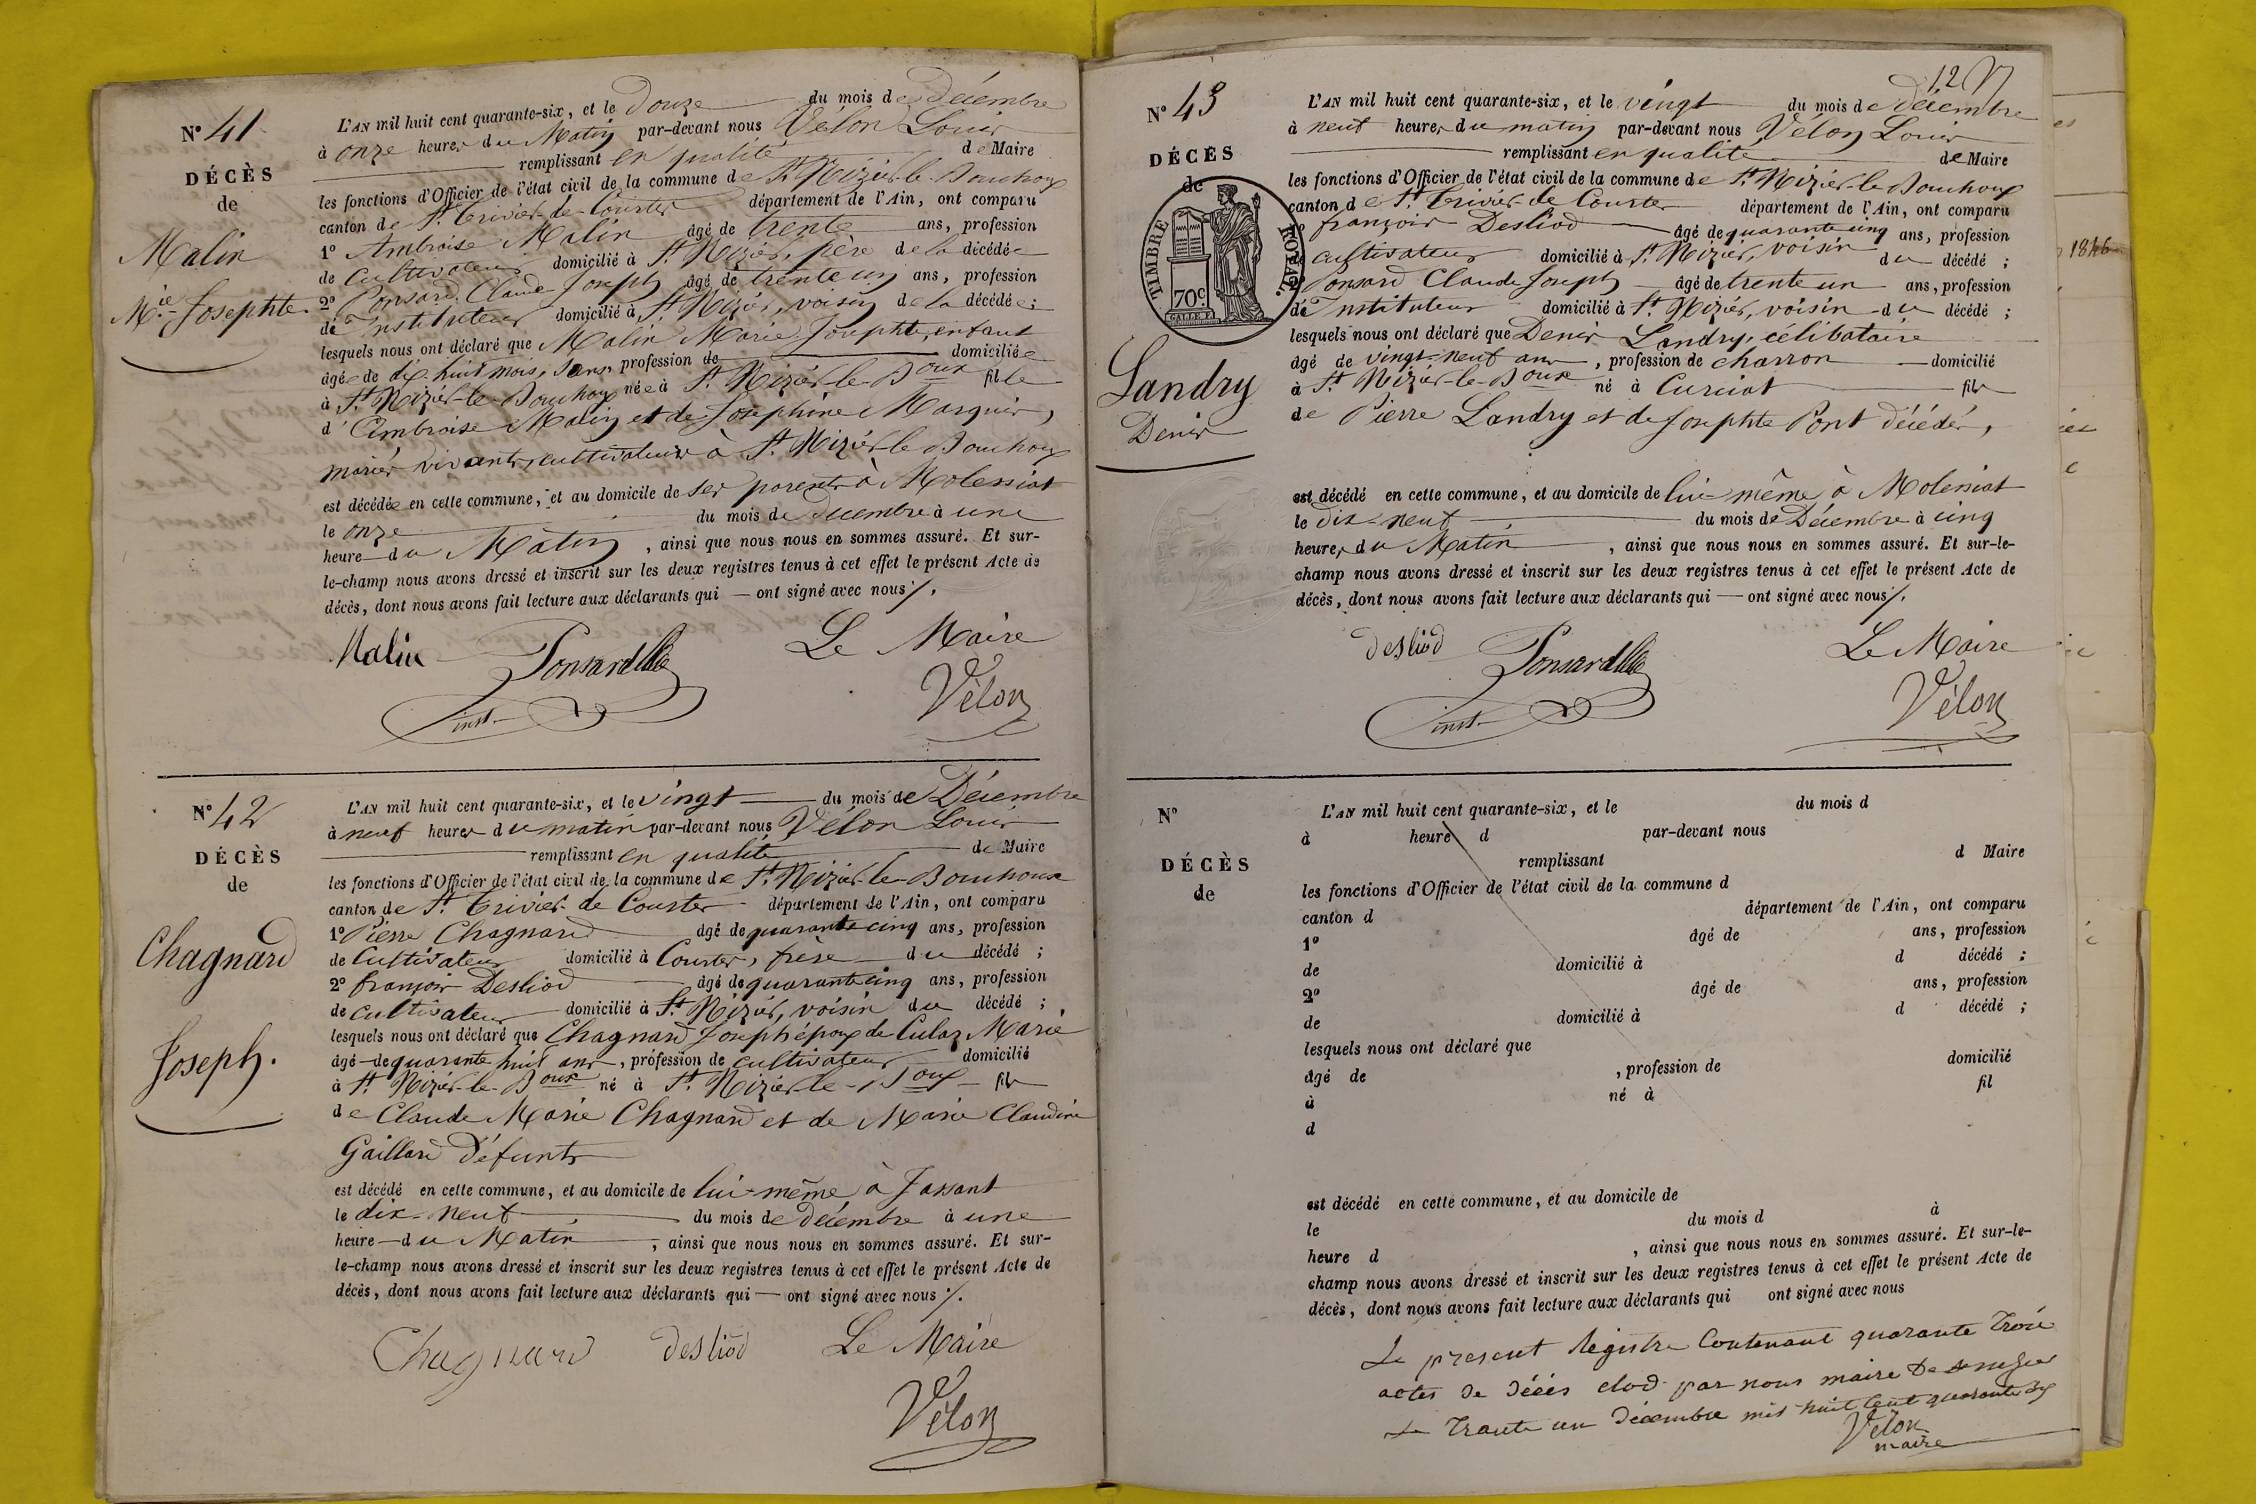 N° 41
DÉCÈS
de
Malin
M.ie Josephte.
L'AN mil huit cent quarante-six, et le Douze du mois de Décembre
à onze heures du Matin par-devant nous Vélon Louis
remplissant en qualité de Maire
les fonctions d'Officier de l'état civil de la commune de St Nizier-le-Bouchoux
canton de St Trivier-de-Courtes département de l'Ain, ont comparu
1° Ambroise Malin âgé de trente ans, profession
de cultivateur domicilié à St Nizier, père de la décédée
2° Ponsard Claude Joseph âgé de trente un ans, profession
de Instituteur domicilié à St Nizier, voisin de la décédée ;
lesquels nous ont déclaré que Malin Marie Josephte, enfant
âgée de dix-huit mois, sans profession de domiciliée
à St Nizier-le-Bouchoux née à St Nizier-le-Boux fille
d'Ambroise Malin et de Josephine Marguin,
mariés vivants, cultivateurs à St Nizier-le-Bouchoux
est décédée en cette commune, et au domicile de ses parents à Molessiat
le onze du mois de Décembre à une
heure du Matin, ainsi que nous nous en sommes assuré. Et sur-
le-champ nous avons dressé et inscrit sur les deux registres tenus à cet effet le présent Acte de
décès, dont nous avons fait lecture aux déclarants qui — ont signé avec nous ./.
Malin Ponsard Le Maire
inst. Vélon
N° 42
DÉCÈS
de
Chagnard
Joseph.
L'AN mil huit cent quarante-six, et le vingt du mois de Décembre
à neuf heures du matin par-devant nous Vélon Louis
remplissant en qualité de Maire
les fonctions d'Officier de l'état civil de la commune de St Nizier-le-Bouchoux
canton de St Trivier-de-Courtes département de l'Ain, ont comparu
1° Pierre Chagnard âgé de quarante cinq ans, profession
de Cultivateur domicilié à Courtes, frère du décédé ;
2° françois Desliod âgé de quarante cinq ans, profession
de cultivateur domicilié à St Nizier, voisin du décédé ;
lesquels nous ont déclaré que Chagnard Joseph époux de Culaz Marie
âgé de quarante huit ans, profession de cultivateur domicilié
à St Nizier-le-Boux né à St Nizier-le-Boux fils
de Claude Marie Chagnard et de Marie Claudine
Gaillard Défunts
est décédé en cette commune, et au domicile de lui-même à Jassant
le dix-neuf du mois de décembre à une
heure du Matin, ainsi que nous nous en sommes assuré. Et sur-
le-champ nous avons dressé et inscrit sur les deux registres tenus à cet effet le présent Acte de
décès, dont nous avons fait lecture aux déclarants qui — ont signé avec nous ./.
Chagnard desliod Le Maire
Vélon
12
N° 43
DÉCÈS
de
TIMBRE ROYAL.
70c
Landry
Denis
L'AN mil huit cent quarante-six, et le vingt du mois de décembre
à neuf heures du matin par-devant nous Vélon Louis
remplissant en qualité de Maire
les fonctions d'Officier de l'état civil de la commune de St Nizier-le-Bouchoux
canton de St Trivier de Courtes département de l'Ain, ont comparu
françois Desliod âgé de quarante cinq ans, profession
cultivateur domicilié à St Nizier, voisin du décédé ;
Ponsard Claude Joseph âgé de trente un ans, profession
de Instituteur domicilié à St Nizier, voisin du décédé ;
lesquels nous ont déclaré que Denis Landry, célibataire
âgé de vingt-neuf ans, profession de charron domicilié
à St Nizier-le-Boux né à Curciat fils
de Pierre Landry et de Josephte Pont décédés,
est décédé en cette commune, et au domicile de lui-même à Molessiat
le dix-neuf du mois de Décembre à cinq
heures du Matin, ainsi que nous nous en sommes assuré. Et sur-le-
champ nous avons dressé et inscrit sur les deux registres tenus à cet effet le présent Acte de
décès, dont nous avons fait lecture aux déclarants qui — ont signé avec nous ./.
desliod Ponsard Le Maire
inst. Vélon
N°
DÉCÈS
de
L'AN mil huit cent quarante-six, et le du mois d
à heure d par-devant nous
remplissant d Maire
les fonctions d'Officier de l'état civil de la commune d
canton d département de l'Ain, ont comparu
1° âgé de ans, profession
de domicilié à d décédé ;
2° âgé de ans, profession
de domicilié à d décédé ;
lesquels nous ont déclaré que
âgé de , profession de domicilié
à né à fil
d
est décédé en cette commune, et au domicile de
le du mois d à
heure d , ainsi que nous nous en sommes assuré. Et sur-le-
champ nous avons dressé et inscrit sur les deux registres tenus à cet effet le présent Acte de
décès, dont nous avons fait lecture aux déclarants qui ont signé avec nous
Le present Registre Contenant quarante Trois
actes de décès clod par nous maire de st nizier
Le Trante un décembre mil huit cent quarante six
Vélon
maire
1846